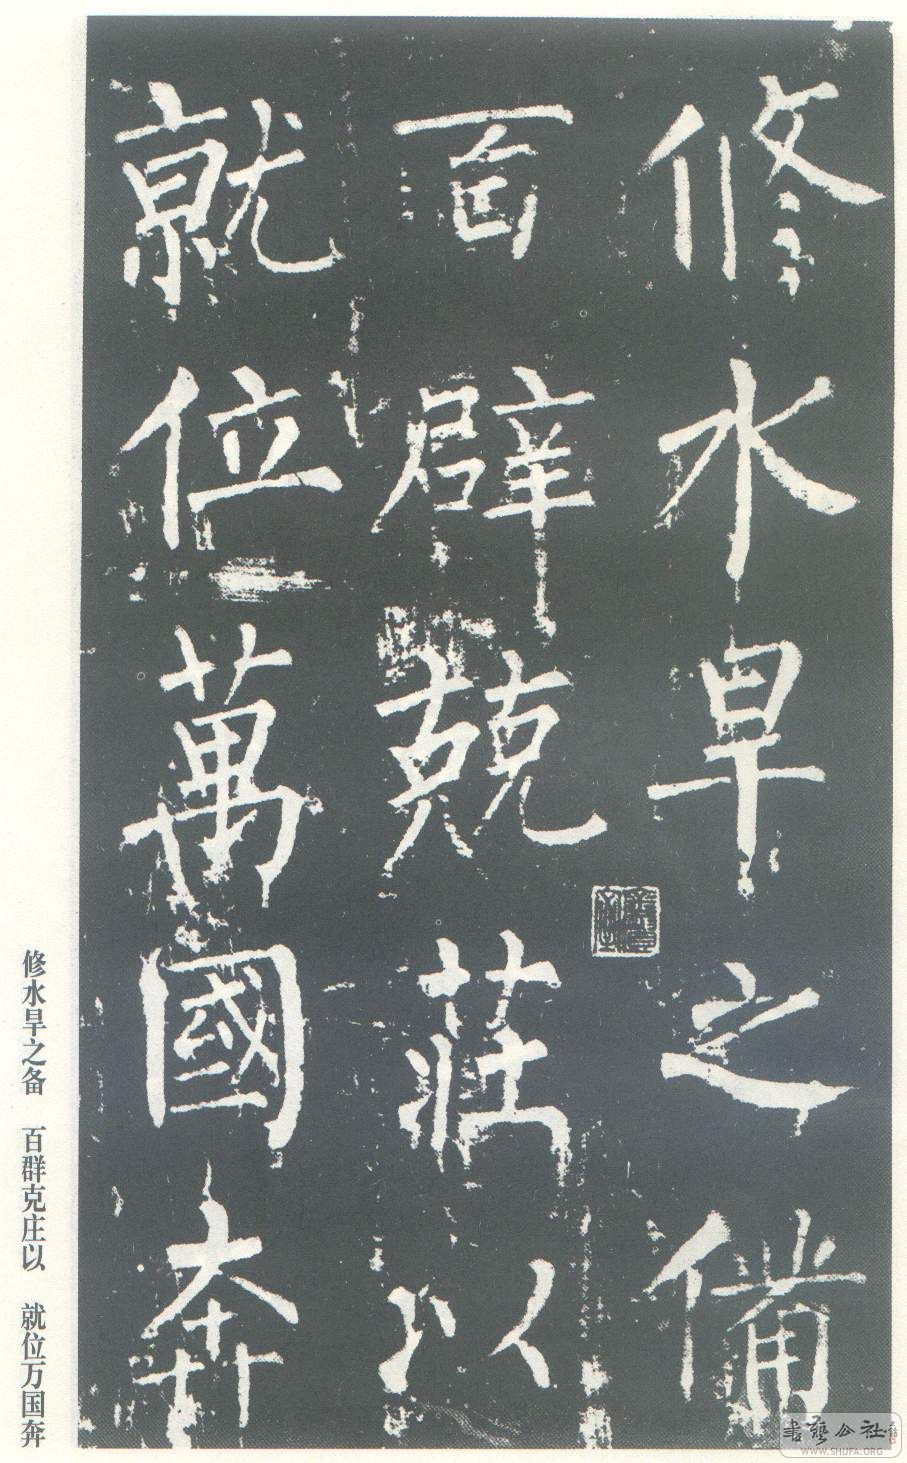 修水旱之備
百辟兢莊以
就位萬國奔
修水旱之备　百群克庄以　就位万国奔
書藝公社
WWW.SHUFA.ORG